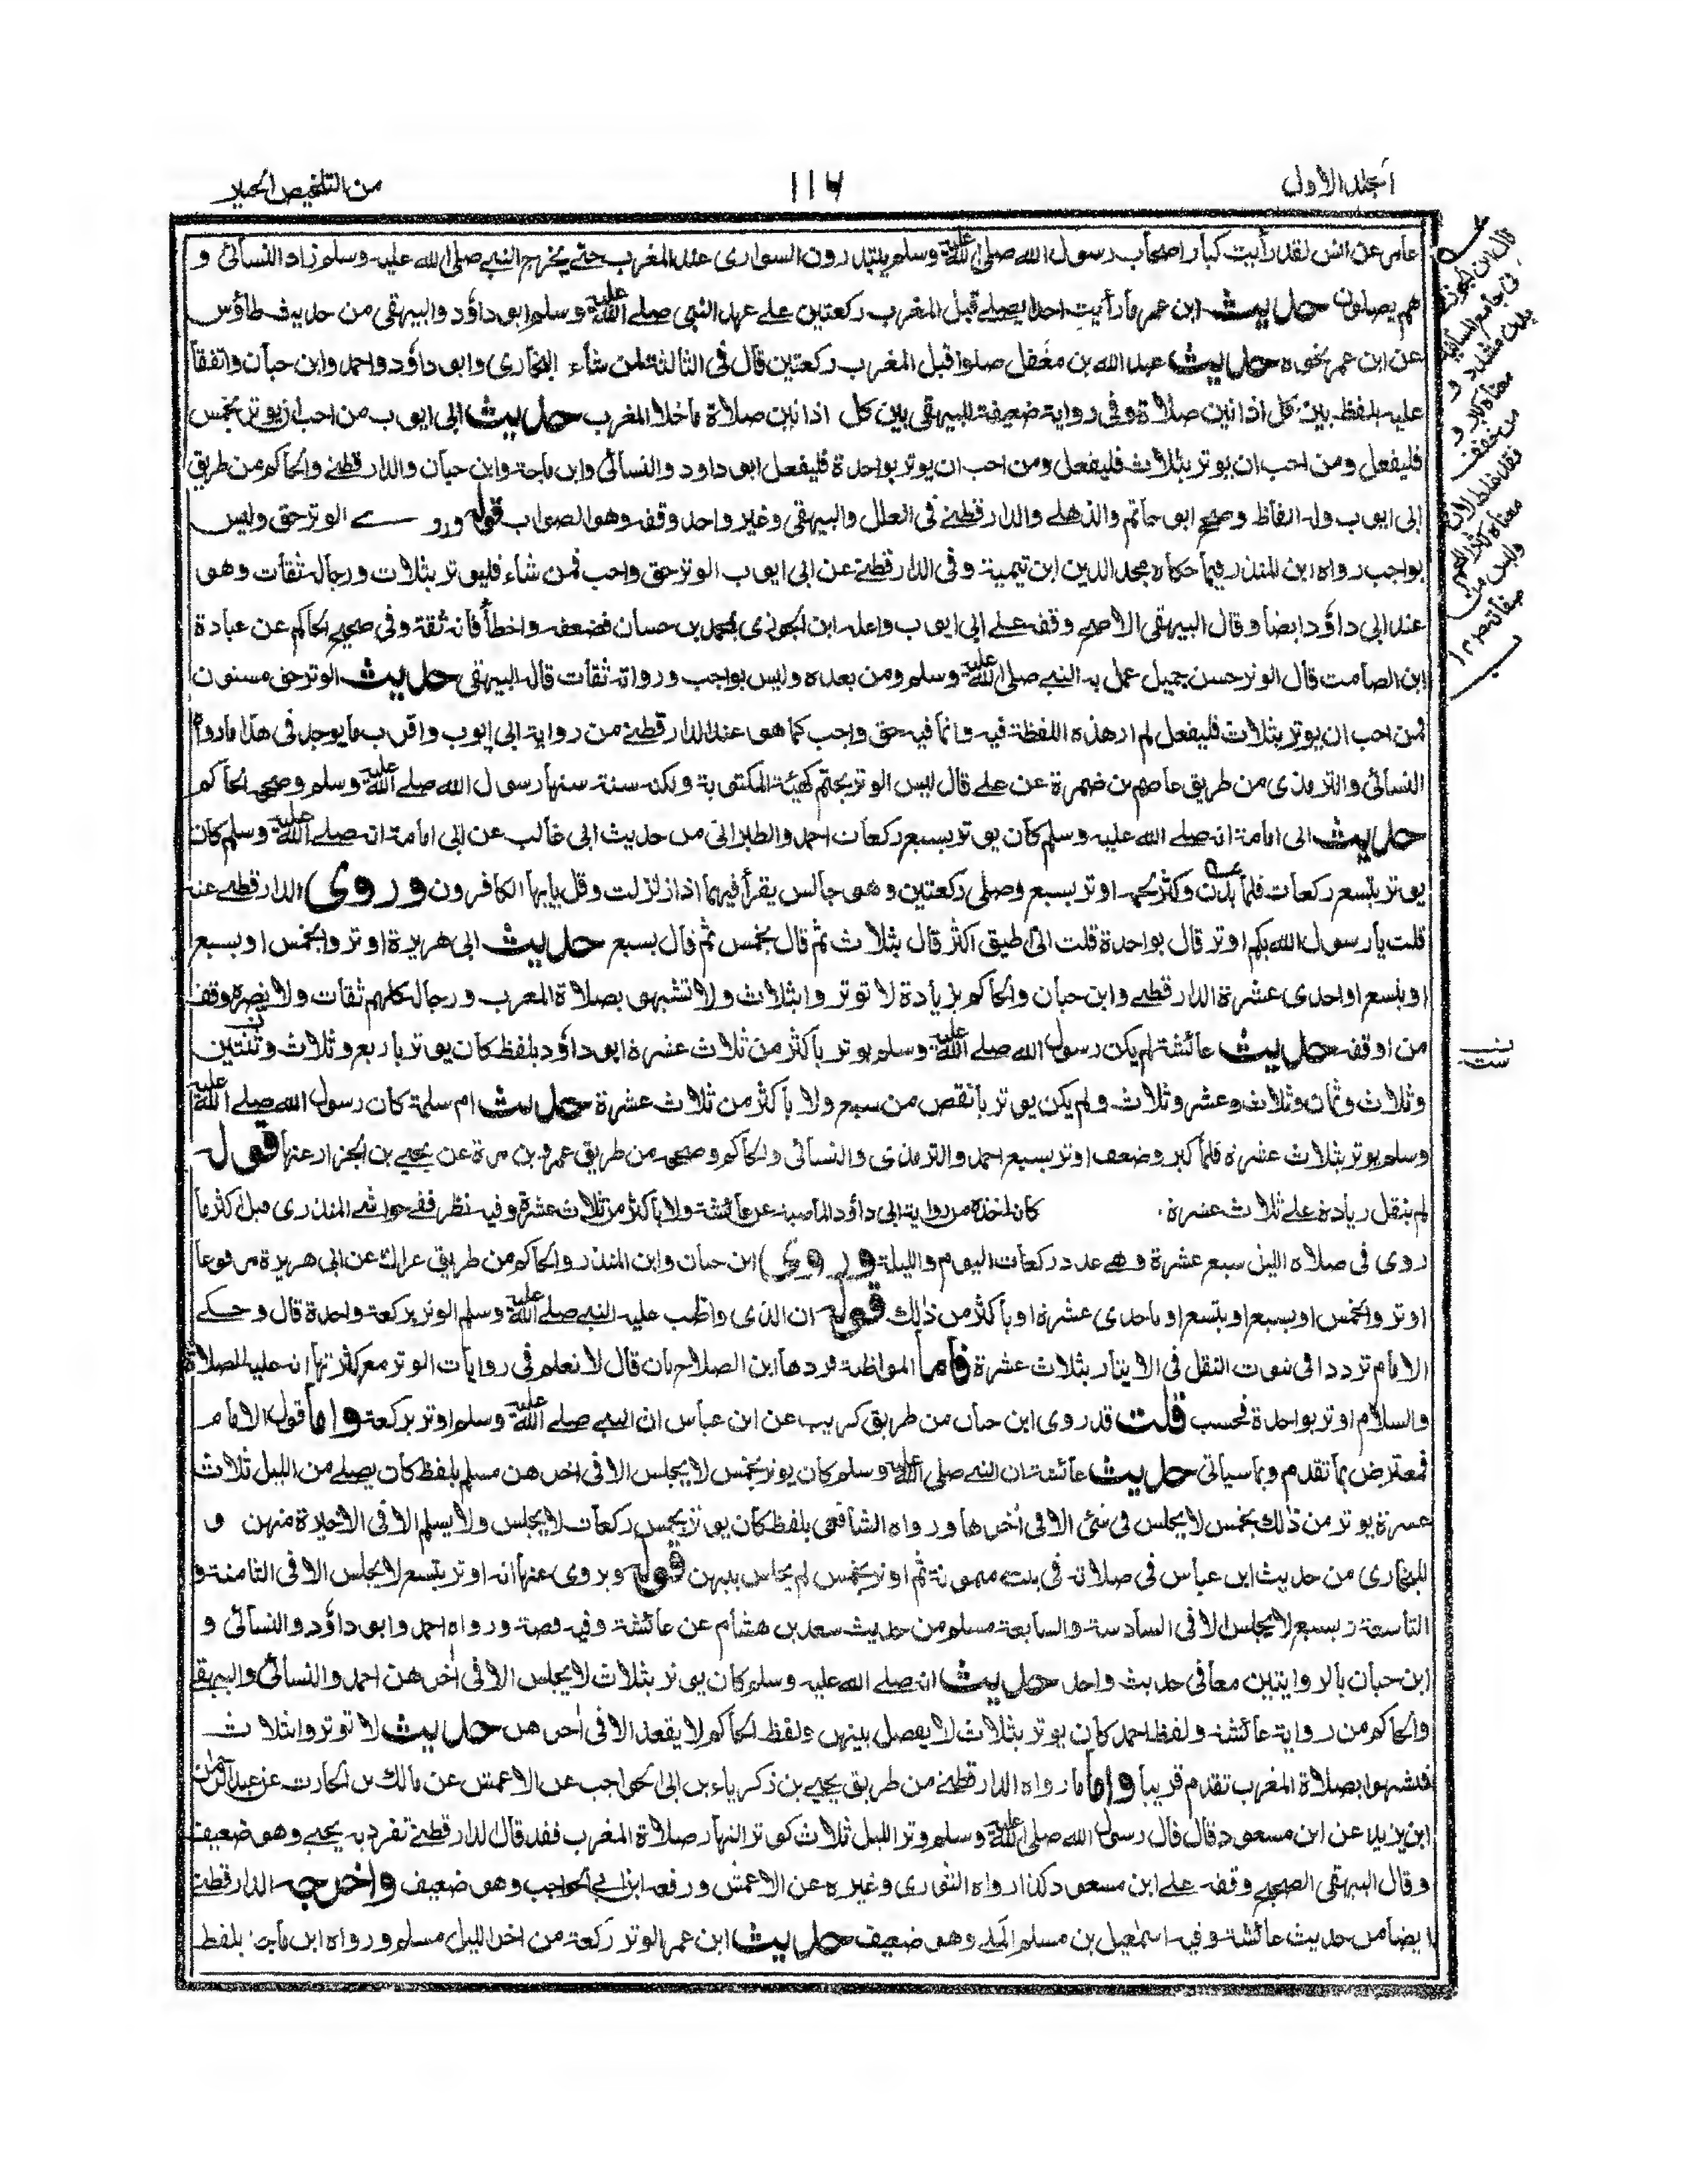 المجلد الاول
١١٦
من التلخيص الحبير
عامر عن انس لقد رأيت كبار اصحاب رسول الله صلى الله عليه وسلم يبتدرون السوارى عند المغرب حتے يخرج النبے صلى الله عليه وسلم زاد النسائى و
هم يصلون حديث ابن عمر ما رأيت احدا يصلے قبل المغرب ركعتين علے عهد النبى صلے الله عليه وسلم ابو داؤد والبيهقى من حديث طاؤس
عن ابن عمر نحوه حديث عبد الله بن مغفل صلوا قبل المغرب ركعتين قال فى الثالثة لمن شاء البخارى وابو داؤد واحمد وابن حبان واتفقا
عليه بلفظ بين كل اذانين صلاة وفى رواية ضعيفة للبيهقى بين كل اذانين صلاة ما خلا المغرب حديث ابى ايوب من احب ان يوتر بخمس
فليفعل ومن احب ان يوتر بثلاث فليفعل ومن احب ان يوتر بواحدة فليفعل ابو داود والنسائى وابن ماجة وابن حبان والدارقطنے والحاكم من طريق
ابى ايوب وله الفاظ وصحح ابو حاتم والذهلے والدارقطنے فى العلل والبيهقى وغير واحد وقفه وهو الصواب قوله وروے الوتر حق وليس
بواجب رواه ابن المنذر فيما حكاه مجد الدين ابن تيمية وفى الدارقطنے عن ابى ايوب الوتر حق واجب فمن شاء فليوتر بثلاث ورجاله ثقات وهو
عند ابى داؤد ايضا وقال البيهقى الاصح وقفه علے ابى ايوب واعله ابن الجوزى بمحمد بن حسان فضعفه واخطأ فانه ثقة وفى صحيح الحاكم عن عبادة
ابن الصامت قال الوتر حسن جميل عمل به النبے صلى الله عليه وسلم ومن بعده وليس بواجب ورواته ثقات قاله البيهقى حديث الوتر حق مسنون
فمن احب ان يوتر بثلاث فليفعل لم ار هذه اللفظة فيه وانما فيه حق واجب كما هو عند الدارقطنے من رواية ابى ايوب واقرب ما يوجد فى هذا ما رواه
النسائى والترمذى من طريق عاصم بن ضمرة عن علے قال ليس الوتر بحتم كهيئة المكتوبة ولكنه سنة سنها رسول الله صلے الله عليه وسلم وصححه الحاكم
حديث ابى امامة انه صلے الله عليه وسلم كان يوتر بسبع ركعات احمد والطبرانى من حديث ابى غالب عن ابى امامة انه صلے الله عليه وسلم كان
يوتر بتسع ركعات فلما بدن وكثر لحمه اوتر بسبع وصلى ركعتين وهو جالس يقرأ فيهما اذا زلزلت وقل يايها الكافرون وروى الدارقطنے عنه
قلت يا رسول الله بكم اوتر قال بواحدة قلت انى اطيق اكثر قال بثلاث ثم قال بخمس ثم قال بسبع حديث ابى هريرة اوتروا بخمس او بسبع
او بتسع او احدى عشرة الدارقطنے وابن حبان والحاكم بزيادة لا توتروا بثلاث ولا تشبهو بصلاة المغرب ورجاله كلهم ثقات ولا يضره وقف
من اوقفه حديث عائشة لم يكن رسول الله صلے الله عليه وسلم يوتر باكثر من ثلاث عشرة ابو داؤد بلفظ كان يوتر باربع وثلاث وثنتين
ست
وثلاث وثمان وثلاث وعشر وثلاث ولم يكن يوتر بانقص من سبع ولا باكثر من ثلاث عشرة حديث ام سلمة كان رسول الله صلے الله عليه
وسلم يوتر بثلاث عشرة فلما كبر وضعف اوتر بسبع احمد والترمذى والنسائى والحاكم وصححه من طريق عمرو بن مرة عن يحيے بن الجزار عنها قوله
لم ينقل زيادة علے ثلاث عشرة كانه اخذه من رواية ابى داؤد الماضية عن عائشة ولا باكثر من ثلاث عشرة وفيه نظر ففے حواشے المنذرى قيل اكثر ما
روى فى صلاة الليل سبع عشرة وهے عدد ركعات اليوم والليلة وروى ابن حبان وابن المنذر والحاكم من طريق عراك عن ابى هريرة مرفوعا
اوتروا بخمس او بسبع او بتسع او باحدى عشرة او باكثر من ذلك قوله ان الذى واظب عليه النبے صلے الله عليه وسلم الوتر بركعة واحدة قال وحكے
الامام ترددا فى ثبوت النقل فى الايتار بثلاث عشرة فاما المواظبة فردها ابن الصلاح بان قال لا نعلم فى روايات الوتر مع كثرتها انه عليه الصلاة
والسلام اوتر بواحدة فحسب قلت قد روى ابن حبان من طريق كريب عن ابن عباس ان النبے صلے الله عليه وسلم اوتر بركعة واما قول الامام
فمعترض بما تقدم وبما سياتى حديث عائشة ان النبے صلى الله عليه وسلم كان يوتر بخمس لا يجلس الا فى اخرهن مسلم بلفظ كان يصلے من الليل ثلاث
عشرة يوتر من ذلك بخمس لا يجلس فى شئ الا فى اخرها ورواه الشافعى بلفظ كان يوتر بخمس ركعات لا يجلس ولا يسلم الا فى الاخيرة منهن و
للبخارى من حديث ابن عباس فى صلاته فى بيت ميمونة ثم اوتر بخمس لم يجلس بينهن قوله ويروى عنها انه اوتر بتسع لا يجلس الا فى الثامنة و
التاسعة وبسبع لا يجلس الا فى السادسة والسابعة مسلم من حديث سعد بن هشام عن عائشة وفيه قصة ورواه احمد وابو داؤد والنسائى و
ابن حبان بالروايتين معا فى حديث واحد حديث انه صلے الله عليه وسلم كان يوتر بثلاث لا يجلس الا فى اخرهن احمد والنسائى والبيهقے
والحاكم من رواية عائشة ولفظ احمد كان يوتر بثلاث لا يفصل بينهن ولفظ الحاكم لا يقعد الا فى اخرهن حديث لا توتروا بثلاث
فتشبهوا بصلاة المغرب تقدم قريبا واما ما رواه الدارقطنے من طريق يحيے بن زكرياء بن ابى الحواجب عن الاعمش عن مالك بن الحارث عن عبد الرحمن
ابن يزيد عن ابن مسعود قال قال رسول الله صلى الله عليه وسلم وتر الليل ثلاث كوتر النهار صلاة المغرب فقد قال الدارقطنے تفرد به يحيے وهو ضعيف
وقال البيهقى الصحيح وقفه علے ابن مسعود كذا رواه الثورى وغيره عن الاعمش ورفعه ابن ابى الحواجب وهو ضعيف واخرجه الدارقطنے
ايضا من حديث عائشة وفيه اسمعيل بن مسلم المكے وهو ضعيف حديث ابن عمر الوتر ركعة من اخر الليل مسلم ورواه ابن ماجة بلفظ
قال ابن الجوزى
فى جامع المسانيد
بدن مشدد و
معناه كبر و
من خفف
فقد غلط لان
معناه كثر اللحم
وليس من
صفاته ص ١٢